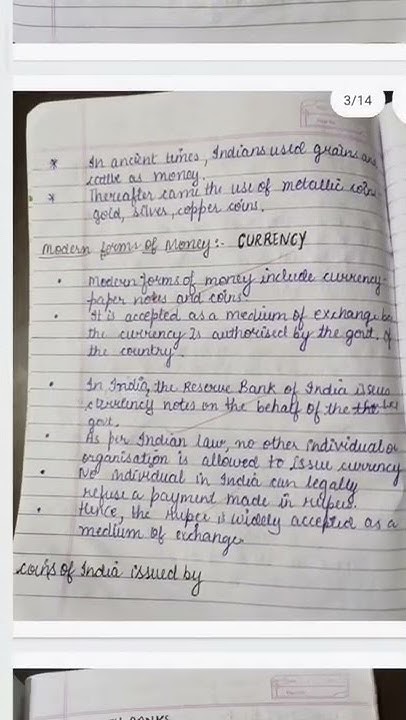 3/14
* In ancient times, Indians used grains and
cattle as money.
* Thereafter came the use of metallic coins
gold, silver, copper coins.
Modern forms of Money:- CURRENCY
• Modern forms of money include currency-
paper notes and coins
• It is accepted as a medium of exchange
the currency is authorised by the govt. of
the country.
• In India, the Reserve Bank of India issues
currency notes on the behalf of the
govt.
• As per Indian law, no other individual or
organisation is allowed to issue currency
• No individual in India can legally
refuse a payment made in rupees.
• Hence, the rupee is widely accepted as a
medium of exchange
coins of India issued by
BANKS